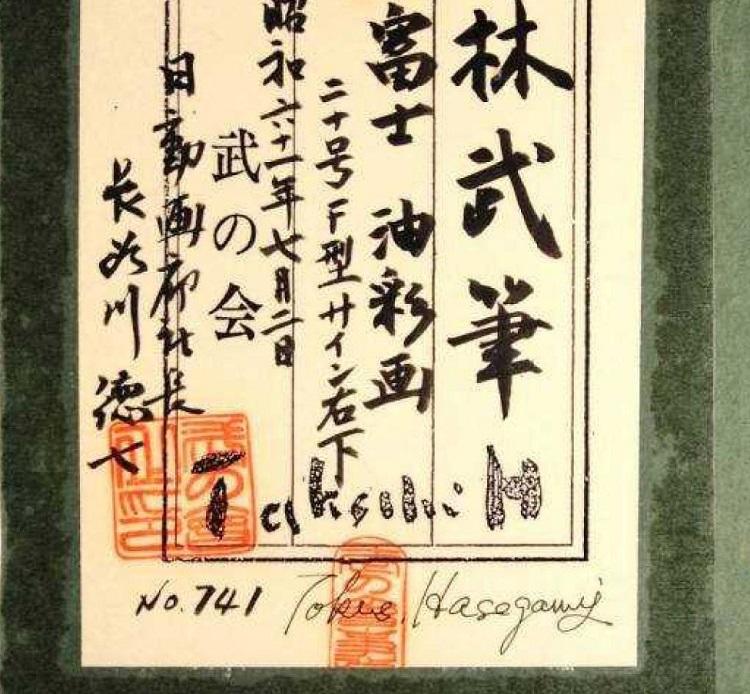 林武筆
富士 油彩画
二十号F型サイン右下
昭和六十一年七月二日
武の会
日動画廊社長
長谷川 徳七
Takeshi H
No. 741
Hasegawa